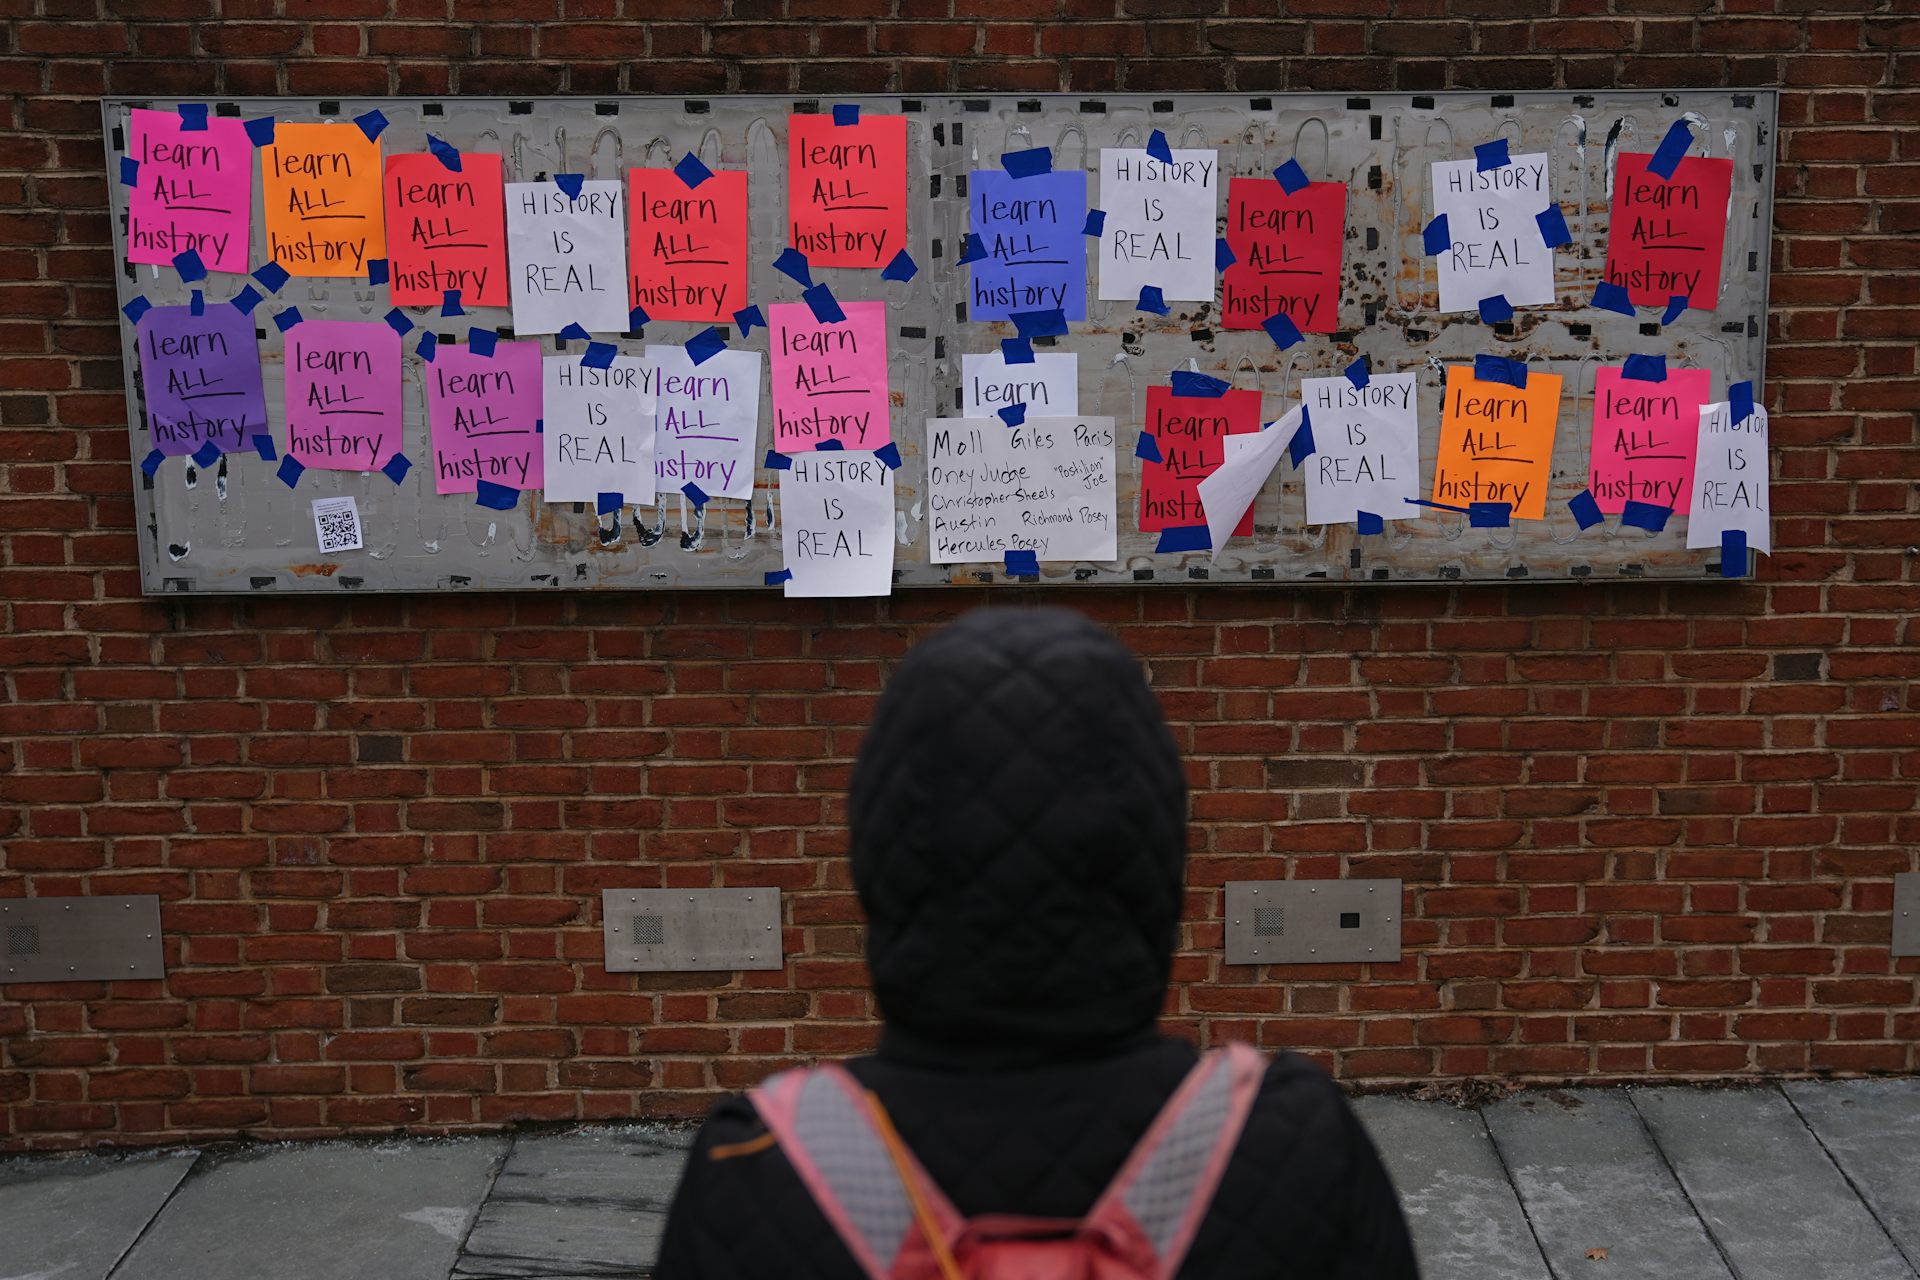 learn
ALL
history
learn
ALL
history
learn
ALL
history
HISTORY
IS
REAL
learn
ALL
history
learn
ALL
history
learn
ALL
history
HISTORY
IS
REAL
learn
ALL
history
HISTORY
IS
REAL
learn
ALL
history
learn
ALL
history
learn
ALL
history
learn
ALL
history
HISTORY
IS
REAL
learn
ALL
istory
learn
ALL
history
HISTORY
IS
REAL
learn
Moll Giles Paris
Oney Judge "Postilion"
Joe
Christopher Sheels
Austin Richmond Posey
Hercules Posey
learn
ALL
histo
HISTORY
IS
REAL
learn
ALL
history
learn
ALL
history
HISTO
IS
REAL